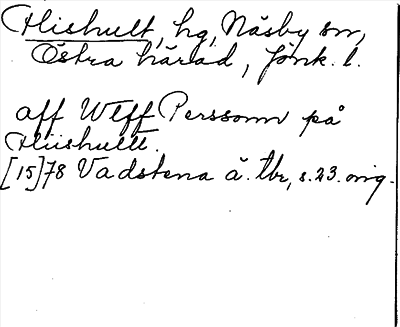 Hishult, hg, Näsby sn,
Östra härad, Jönk. l.
aff Wlff Perssonn på
Hiishultt.
[15]78 Vadstena ä. tbr, s. 23. orig.